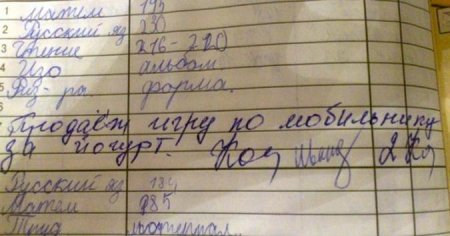 1 Матем 195
2 Русский яз 230
3 Чтение 216-220
4 Изо альбом
5 Физ-ра форма.
6
Продаёт игру по мобильнику
за йогурт.
Русский яз 184
Матем 985
Труд